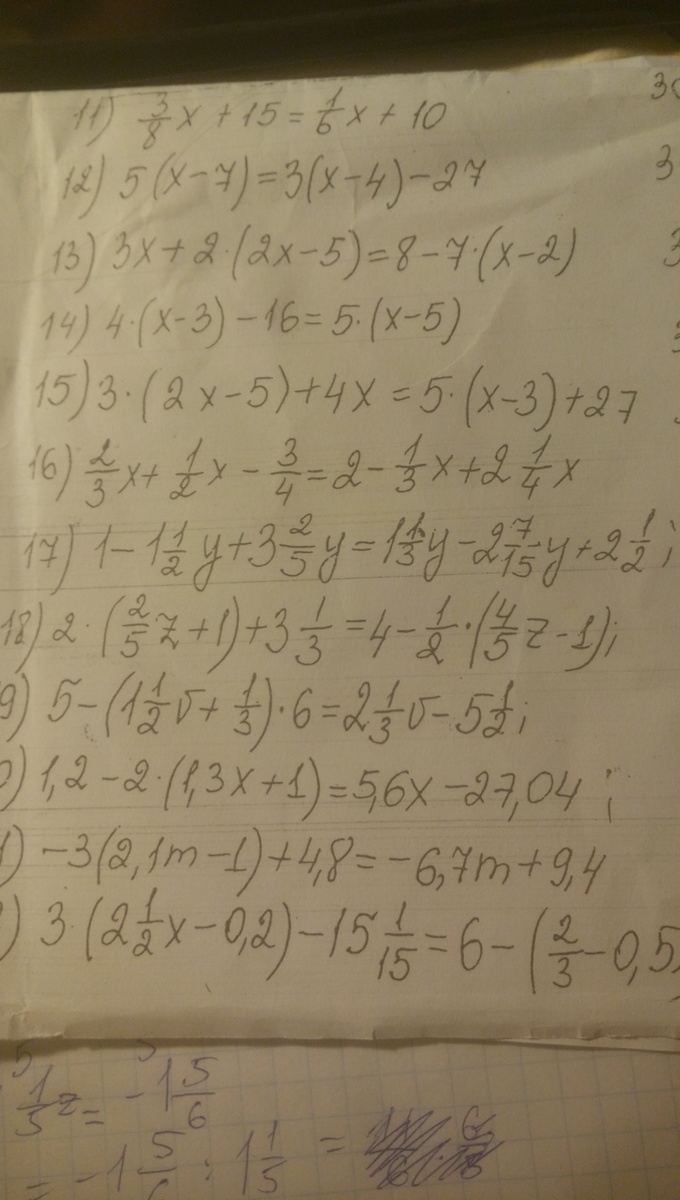 11) 3/8 x + 15 = 1/6 x + 10
12) 5(x-7) = 3(x-4) - 27
13) 3x + 2·(2x-5) = 8 - 7·(x-2)
14) 4·(x-3) - 16 = 5·(x-5)
15) 3·(2x-5) + 4x = 5·(x-3) + 27
16) 2/3 x + 1/2 x - 3/4 = 2 - 1/3 x + 2 1/4 x
17) 1 - 1 1/2 y + 3 2/5 y = 1 1/3 y - 2 7/15 y + 2 1/2;
18) 2·(2/5 z + 1) + 3 1/3 = 4 - 1/2·(4/5 z - 1);
9) 5 - (1 1/2 v + 1/3)·6 = 2 1/3 v - 5 1/2;
) 1,2 - 2·(1,3x + 1) = 5,6x - 27,04;
) -3(2,1m - 1) + 4,8 = -6,7m + 9,4
) 3·(2 1/2 x - 0,2) - 15 1/15 = 6 - (2/3 - 0,5
1/3 z = -1 5/6
= -1 5/6 : 1 1/3 =